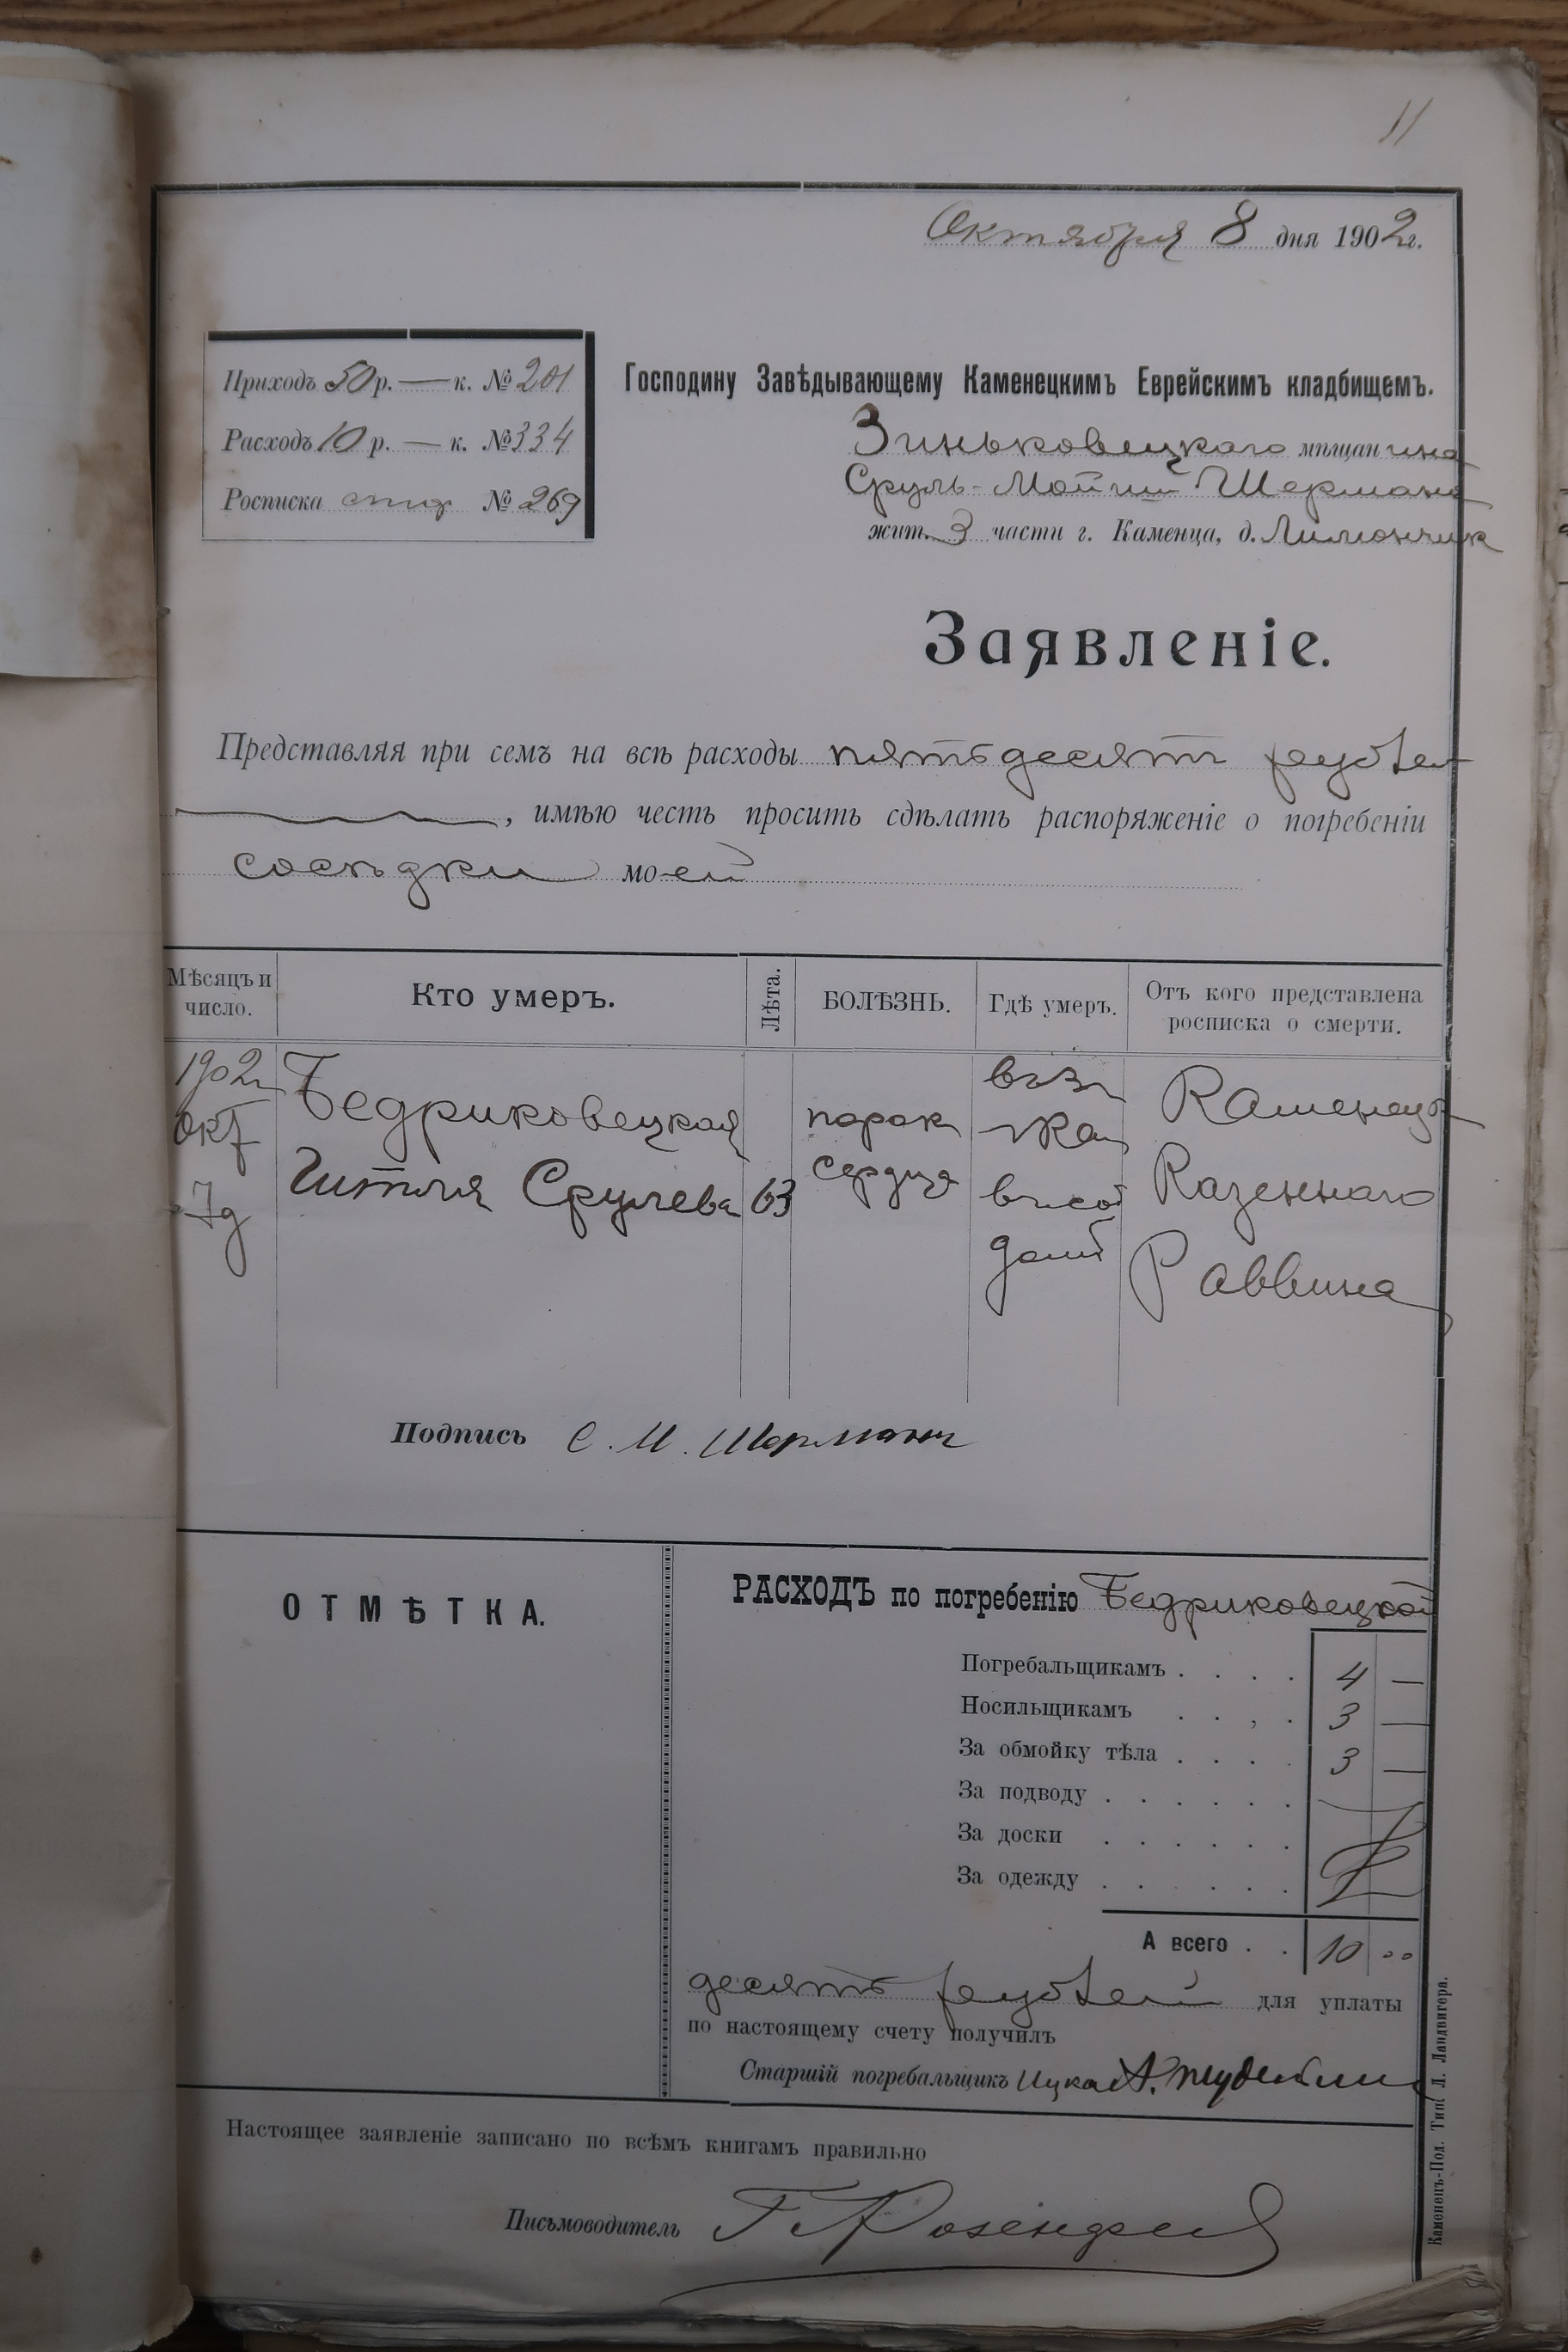 11
Октября 8 дня 1902г.
Приходъ 50 р. — к. № 201
Расходъ 10 р. — к. № 334
Росписка № 269
Господину Завѣдывающему Каменецкимъ Еврейскимъ кладбищемъ.
Зиньковецкаго мѣщанина
Сруль-Мойши Шермана
жит. 3 части г. Каменца, д. Лимончик
Заявленіе.
Представляя при семъ на всѣ расходы пятьдесятъ рублей
, имѣю честь просить сдѣлать распоряженіе о погребеніи
сосѣдки моей
Мѣсяцъ и число.
Кто умеръ.
Лѣта.
БОЛѢЗНЬ.
Гдѣ умеръ.
Отъ кого представлена росписка о смерти.
1902
Окт
7д
Бедриковецкая
Гитля Срулева
63
порок
сердца
въ 3
въ
домѣ
Каменец
Казеннаго
Раввина
Подпись С. М. Шерманъ
ОТМѢТКА.
РАСХОДЪ по погребенію Бедриковецкой
Погребальщикамъ . . . . 4 —
Носильщикамъ . . , . 3 —
За обмойку тѣла . . . . 3 —
За подводу . . . . . .
За доски . . . . . .
За одежду . . . . . .
А всего . . 10 00
десять рублей для уплаты
по настоящему счету получилъ
Старшій погребальщикъ Ицко
Настоящее заявленіе записано по всѣмъ книгамъ правильно
Письмоводитель Розенфельд
Каменецъ-Под. Тип. Л. Ландвигера.